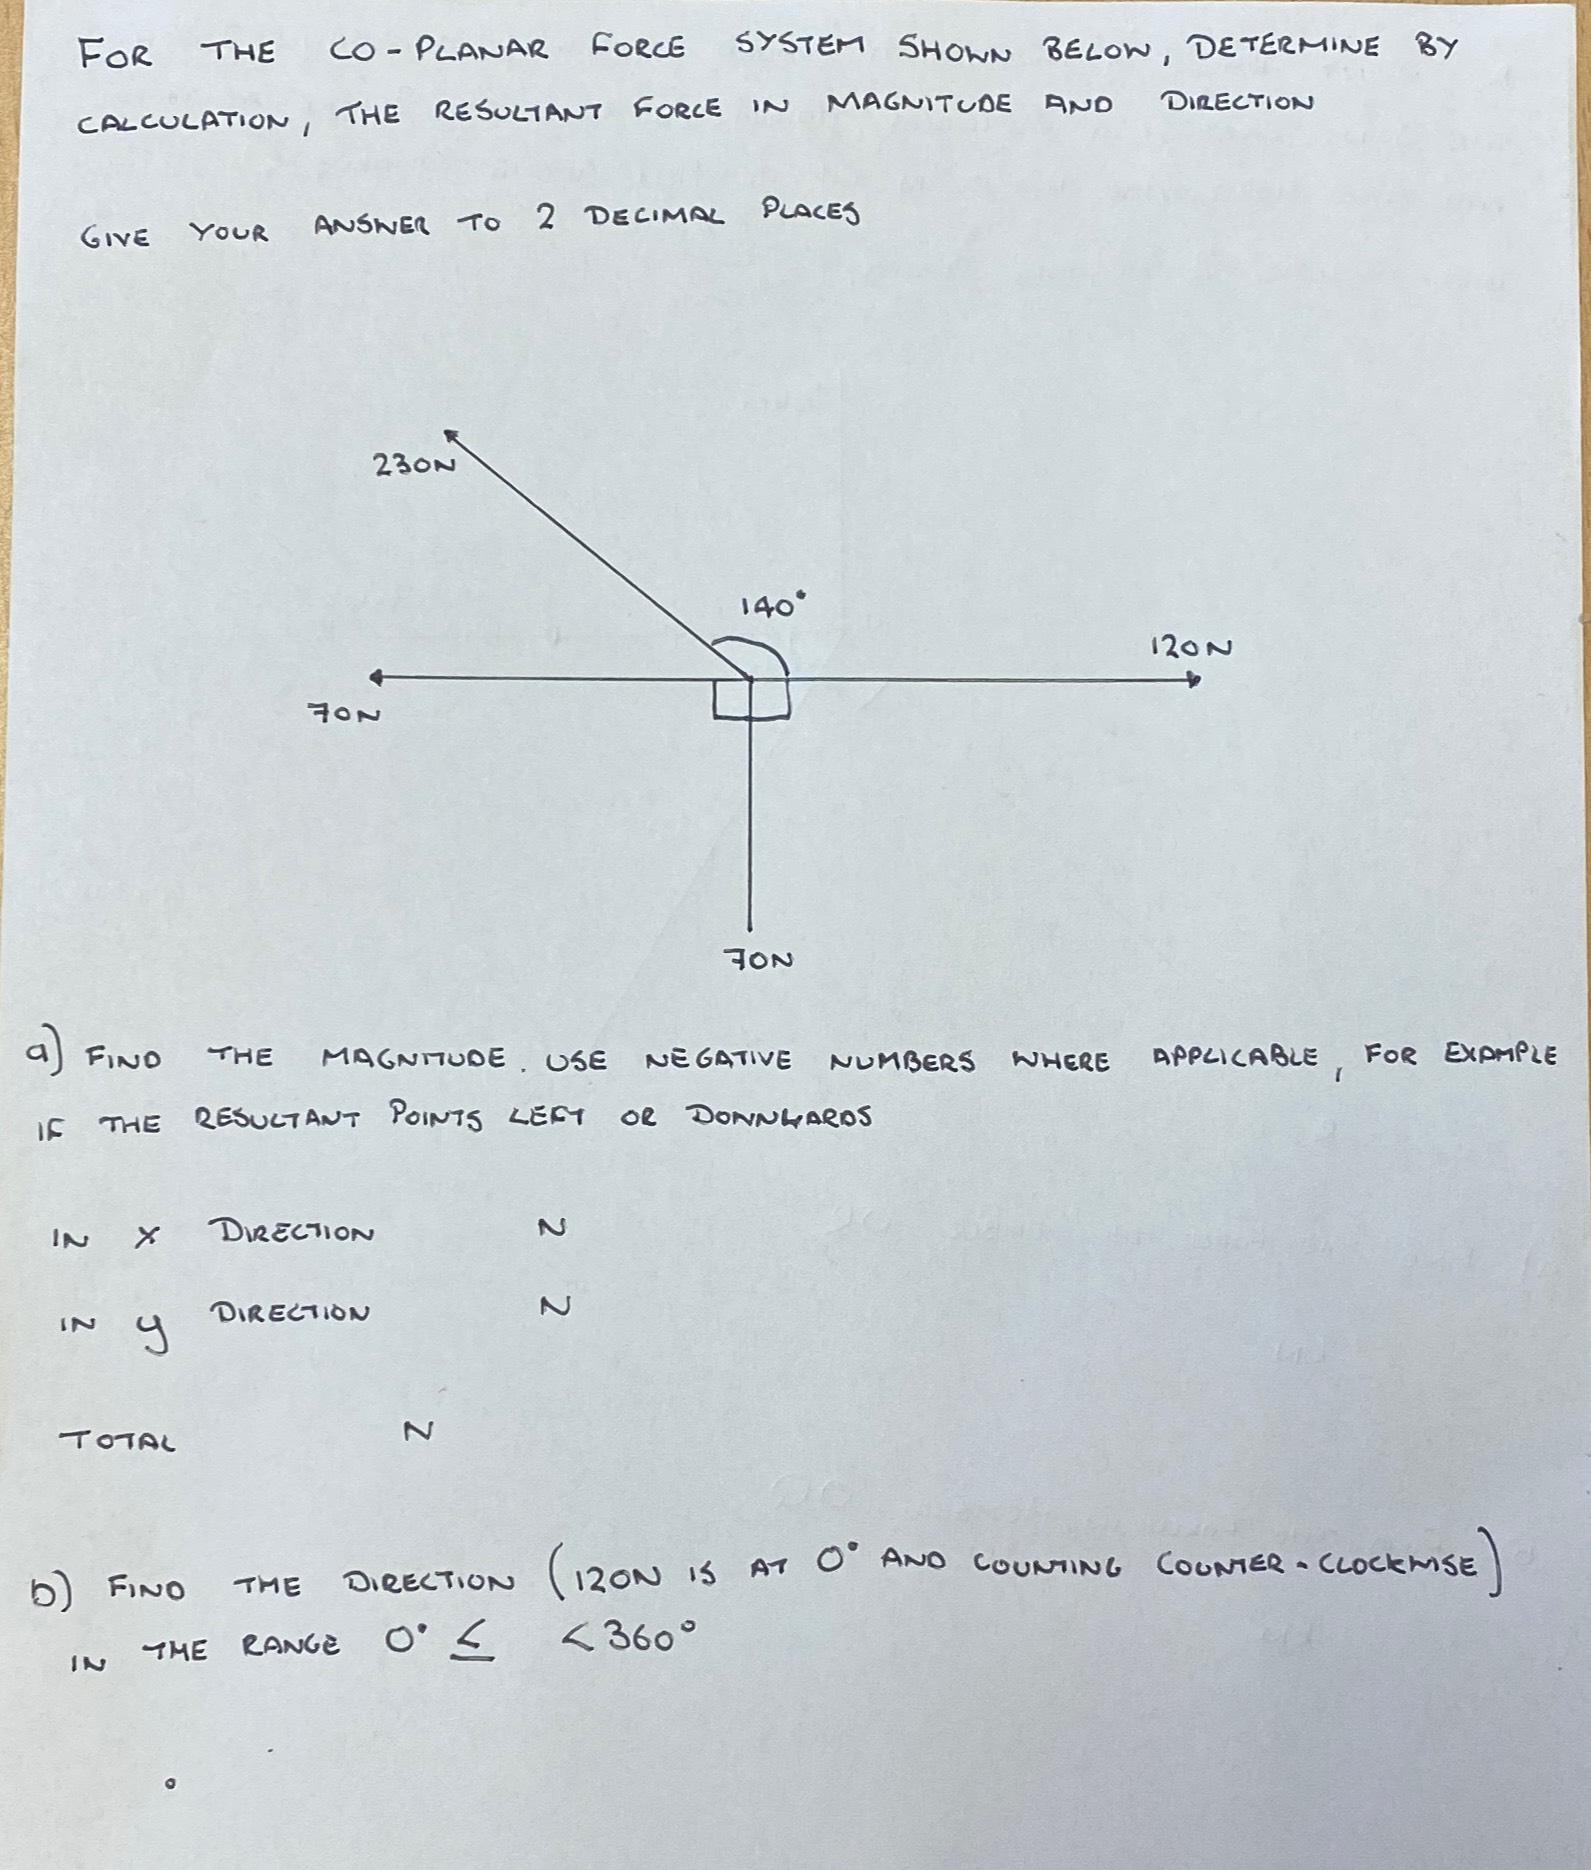 FOR THE CO-PLANAR FORCE SYSTEM SHOWN BELOW, DETERMINE BY
CALCULATION, THE RESULTANT FORCE IN MAGNITUDE AND DIRECTION
GIVE YOUR ANSWER TO 2 DECIMAL PLACES
230N
140°
120N
70N
70N
a) FIND THE MAGNITUDE. USE NEGATIVE NUMBERS WHERE APPLICABLE, FOR EXAMPLE
IF THE RESULTANT POINTS LEFT OR DOWNWARDS
IN X DIRECTION N
IN y DIRECTION N
TOTAL N
b) FIND THE DIRECTION (120N IS AT 0° AND COUNTING COUNTER-CLOCKWISE)
IN THE RANGE 0° ≤ < 360°
°